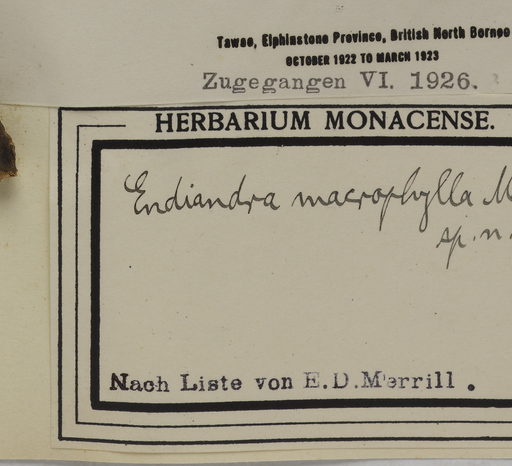 Tawao, Elphinstone Province, British North Borneo
OCTOBER 1922 TO MARCH 1923
Zugegangen VI. 1926.
HERBARIUM MONACENSE.
Endiandra macrophylla M
sp. n.
Nach Liste von E.D.Merrill .